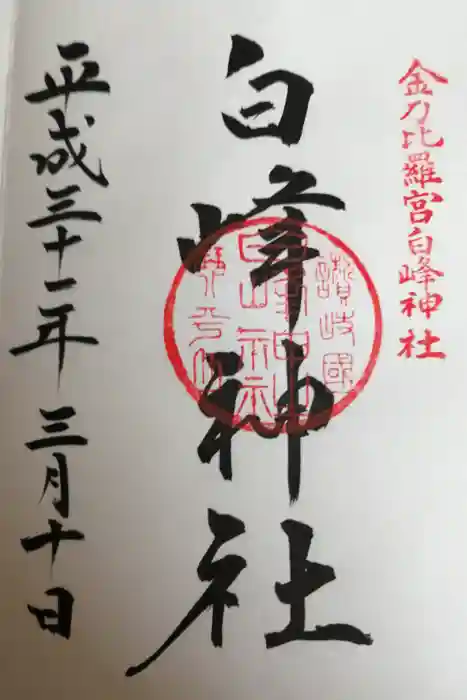 金刀比羅宮白峰神社
白峰神社
讃岐國
平成三十一年三月十日